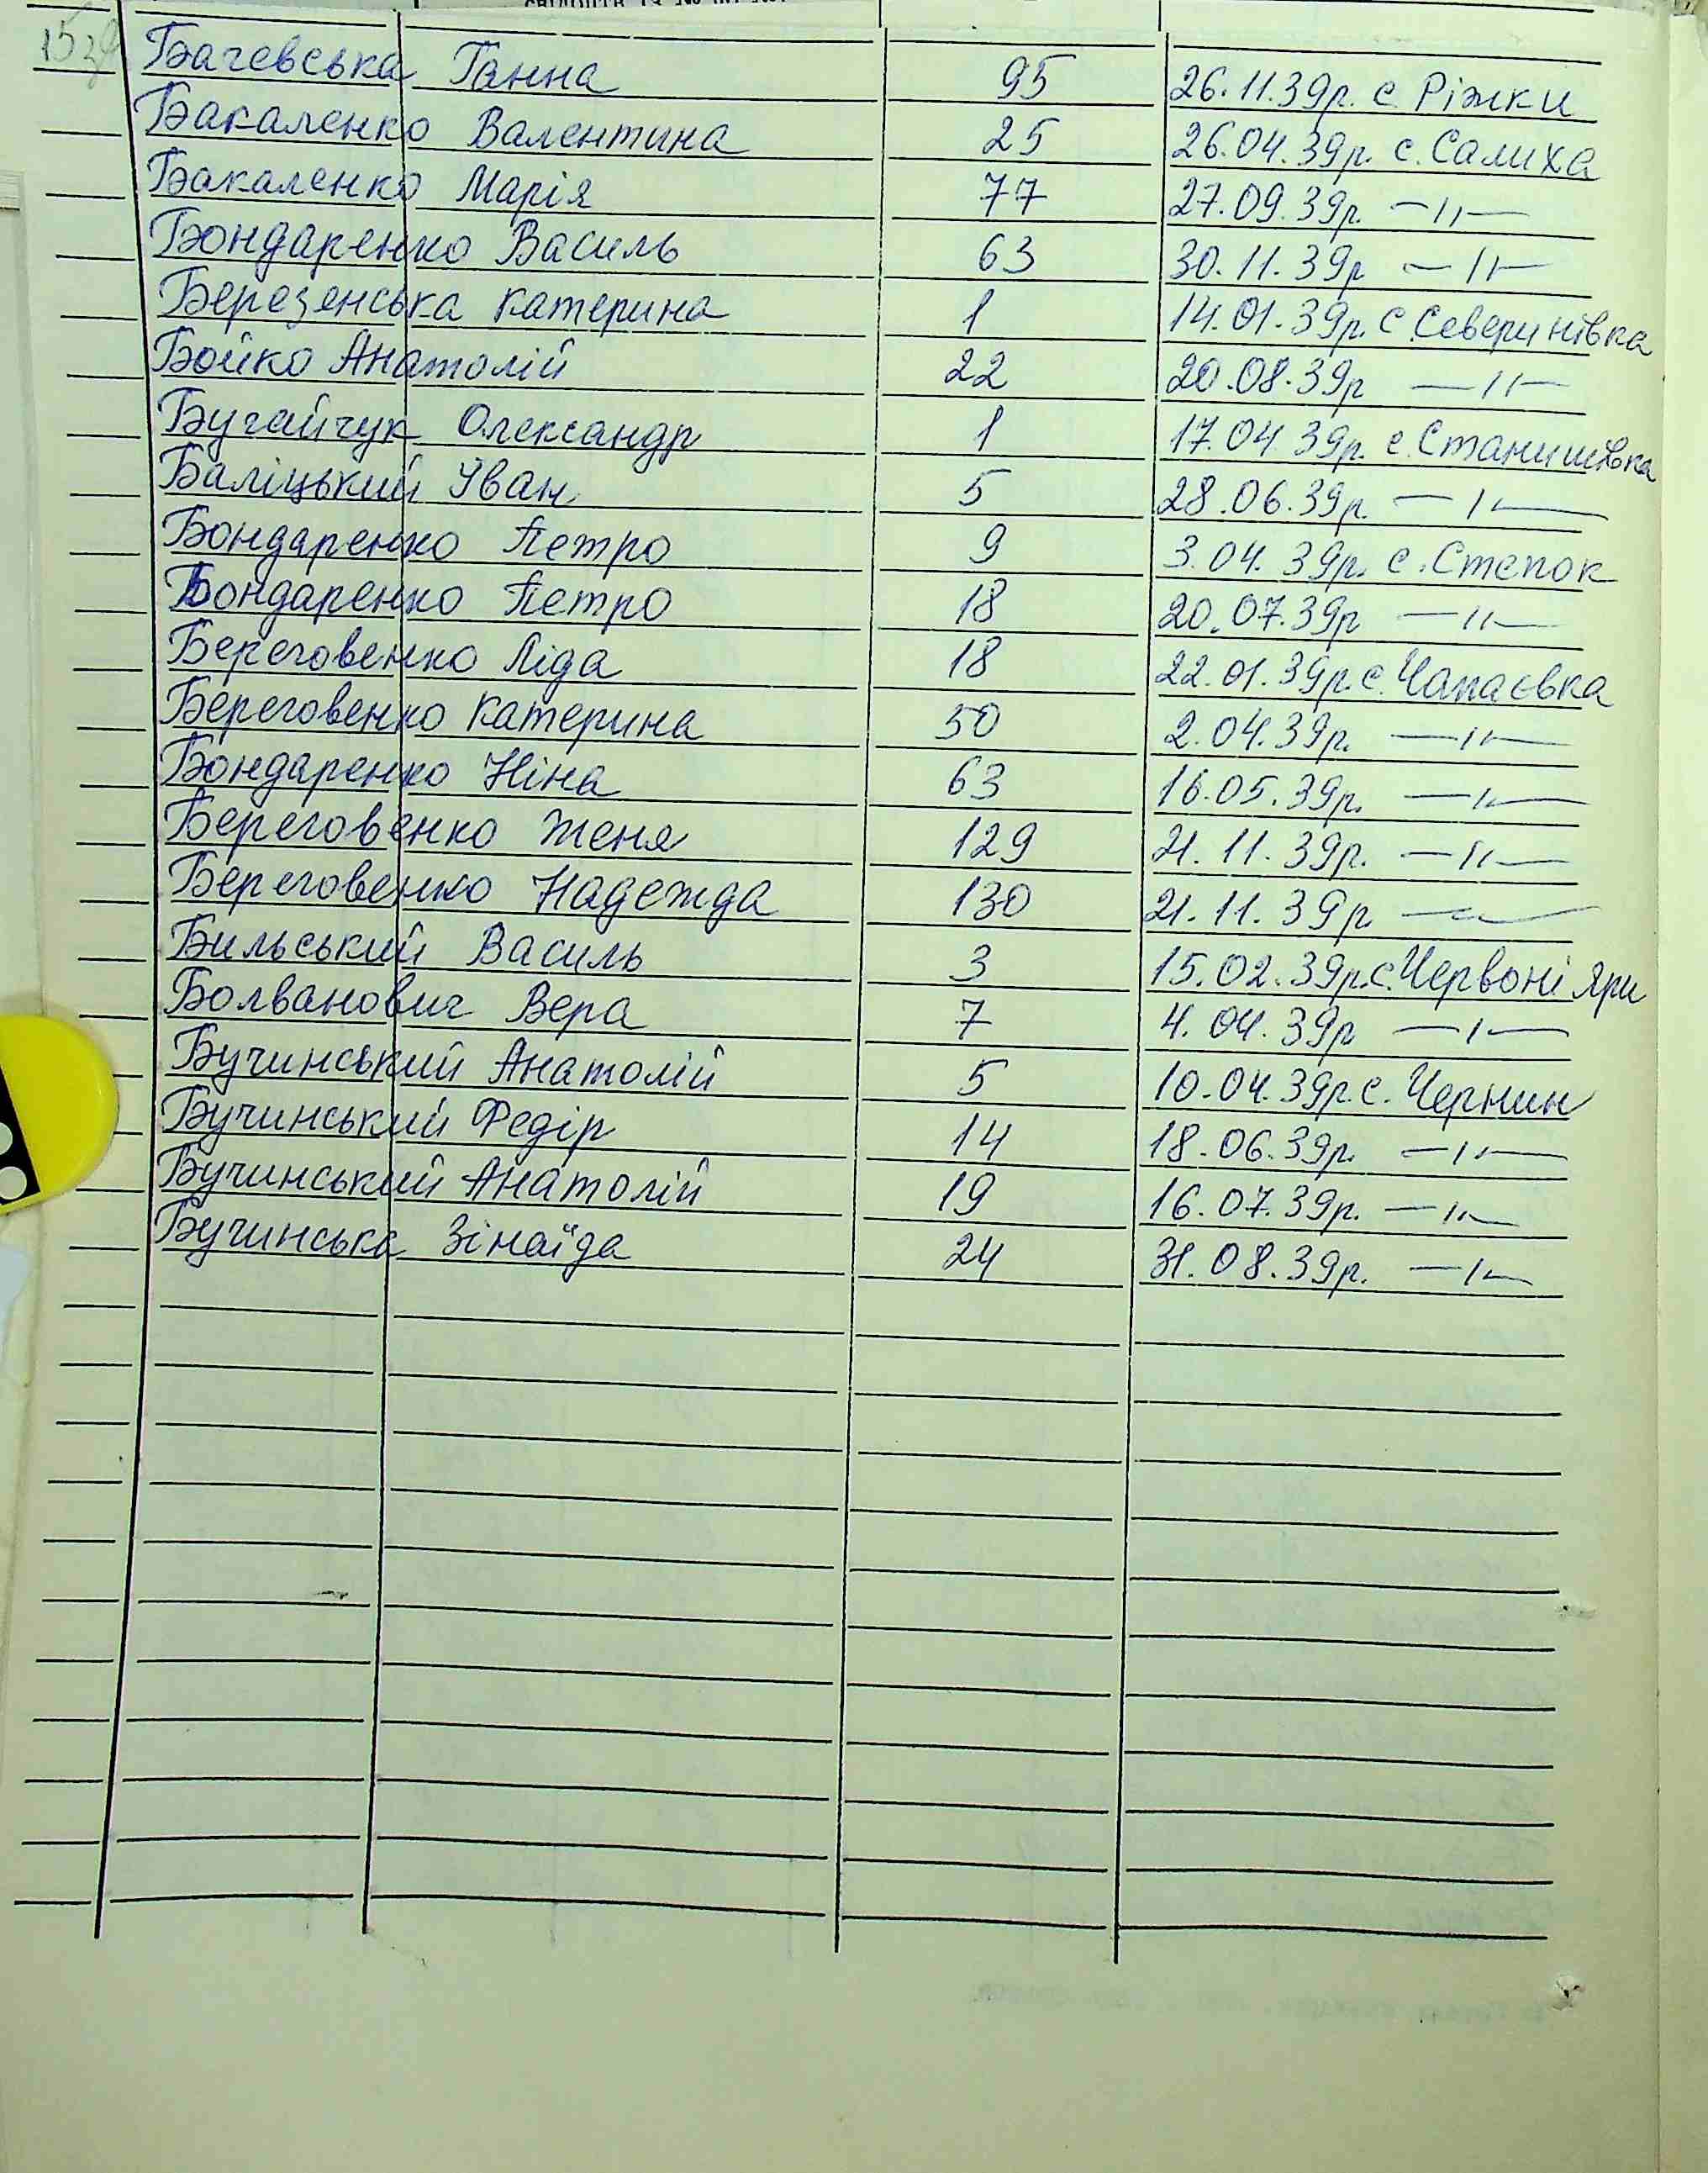 15зв
Бачевська Ганна 95 26.11.39р. с. Ріжки
Бакаленко Валентина 25 26.04.39р. с. Салиха
Бакаленко Марія 77 27.09.39р. —〃—
Бондаренко Василь 63 30.11.39р —〃—
Березенська Катерина 1 14.01.39р. с Северинівка
Бойко Анатолій 22 20.08.39р —〃—
Бугайчук Олександр 1 17.04.39р. с. Станишівка
Баліцький Іван 5 28.06.39р. —〃—
Бондаренко Петро 9 3.04.39р. с. Степок
Бондаренко Петро 18 20.07.39р —〃—
Береговенко Ліда 18 22.01.39р. с. Чапаєвка
Береговенко Катерина 50 2.04.39р. —〃—
Бондаренко Ніна 63 16.05.39р. —〃—
Береговенко Женя 129 21.11.39р. —〃—
Береговенко Надежда 130 21.11.39р —〃—
Бильський Василь 3 15.02.39р. с. Червоні Яри
Болванович Вера 7 4.04.39р —〃—
Бучинський Анатолій 5 10.04.39р. с. Чернин
Бучинський Федір 14 18.06.39р. —〃—
Бучинський Анатолій 19 16.07.39р. —〃—
Бучинська Зінаїда 24 31.08.39р. —〃—